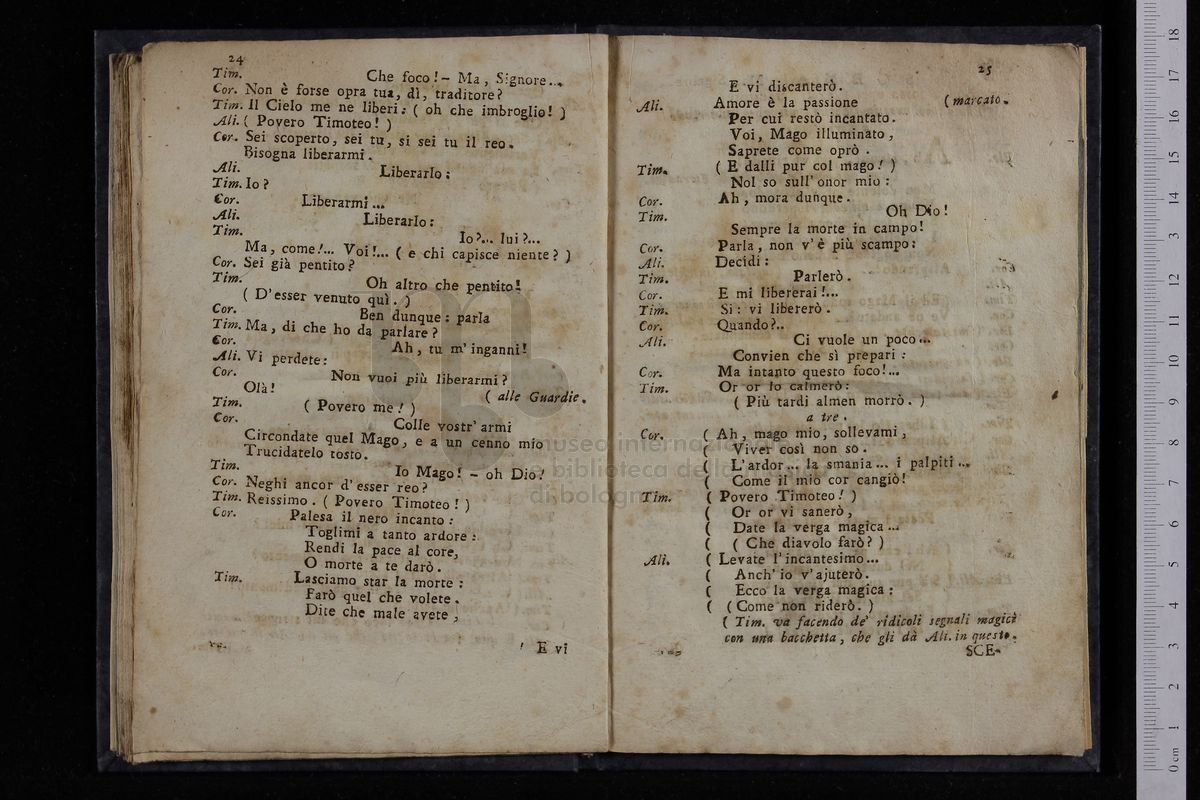 24
Tim. Che foco! - Ma, Signore...
Cor. Non è forse opra tua, dì, traditore?
Tim. Il Cielo me ne liberi: ( oh che imbroglio! )
Ali. ( Povero Timoteo! )
Cor. Sei scoperto, sei tu, si sei tu il reo.
Bisogna liberarmi.
Ali. Liberarlo:
Tim. Io?
Cor. Liberarmi...
Ali. Liberarlo:
Tim. Io?... lui?...
Ma, come!... Voi!... ( e chi capisce niente? )
Cor. Sei già pentito?
Tim. Oh altro che pentito!
( D'esser venuto quì. )
Cor. Ben dunque: parla
Tim. Ma, di che ho da parlare?
Cor. Ah, tu m'inganni!
Ali. Vi perdete:
Cor. Non vuoi più liberarmi?
Olà! ( alle Guardie.
Tim. ( Povero me! )
Cor. Colle vostr' armi
Circondate quel Mago, e a un cenno mio
Trucidatelo tosto.
Tim. Io Mago! - oh Dio!
Cor. Neghi ancor d'esser reo?
Tim. Reissimo. ( Povero Timoteo! )
Cor. Palesa il nero incanto:
Toglimi a tanto ardore:
Rendi la pace al core,
O morte a te darò.
Tim. Lasciamo star la morte:
Farò quel che volete.
Dite che male avete,
E vi
25
E vi discanterò.
Ali. Amore è la passione ( marcato.
Per cui restò incantato.
Voi, Mago illuminato,
Saprete come oprò.
Tim. ( E dalli pur col mago! )
Nol so sull' onor mio:
Cor. Ah, mora dunque.
Tim. Oh Dio!
Sempre la morte in campo!
Cor. Parla, non v'è più scampo:
Ali. Decidi:
Tim. Parlerò.
Cor. E mi libererai!...
Tim. Si: vi libererò.
Cor. Quando?..
Ali. Ci vuole un poco...
Convien che sì prepari:
Cor. Ma intanto questo foco!...
Tim. Or or lo calmerò:
( Più tardi almen morrò. )
a tre.
Cor. ( Ah, mago mio, sollevami,
( Viver così non so.
( L'ardor... la smania... i palpiti...
( Come il mio cor cangiò!
Tim. ( Povero Timoteo! )
( Or or vi sanerò,
( Date la verga magica...
( ( Che diavolo farò? )
Ali. ( Levate l'incantesimo...
( Anch' io v'ajuterò.
( Ecco la verga magica:
( ( Come non riderò. )
( Tim. va facendo de' ridicoli segnali magici
con una bacchetta, che gli dà Ali. in questo.
SCE-
museo internazionale
biblioteca della musica
di bologna
0 cm 1 2 3 4 5 6 7 8 9 10 11 12 13 14 15 16 17 18